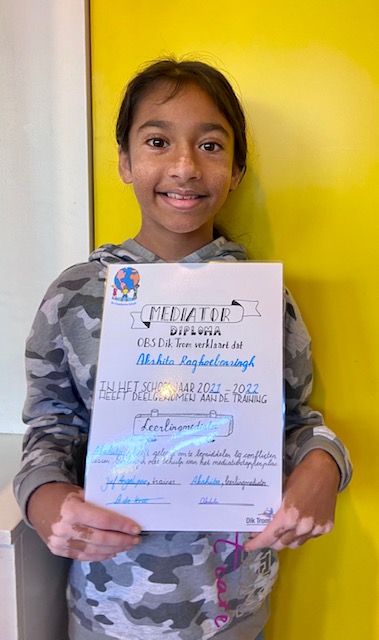 MEDIATOR
DIPLOMA
OBS Dik Trom verklaart dat
Akshita Raghoebarsingh
IN HET SCHOOLJAAR 2021 - 2022
HEEFT DEELGENOMEN AAN DE TRAINING
Leerlingmediator
te bemiddelen bij conflicten
behulp van het mediatorstappenplan
Juf trainer Akshita, leerlingmediator
Dik Trom